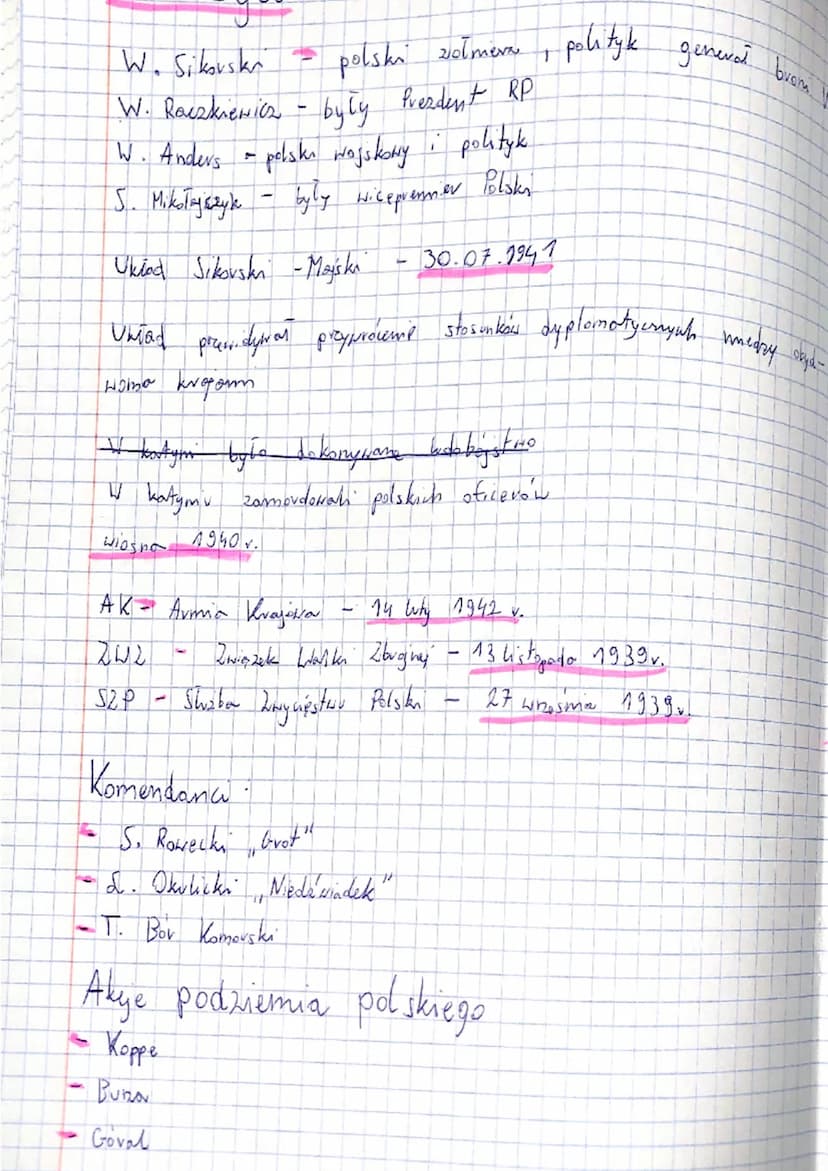 W. Sikorski - polski żołnierz, polityk generał broni
W. Raczkiewicz - były Prezydent RP
W. Anders - polski wojskowy i polityk
S. Mikołajczyk - były wicepremier Polski
Układ Sikorski - Majski - 30.07.1941
Układ przewidywał przywrócenie stosunków dyplomatycznych między oby-
woma krajami
W katyni było dokonywane ludobójstwo
W katyniu zamordowali polskich oficerów
wiosna 1940 r.
AK - Armia Krajowa - 14 luty 1942 r.
ZWZ - Związek Walki Zbrojnej - 13 listopada 1939 r.
SZP - Służba Zwycięstwu Polski - 27 września 1939 r.
Komendanci:
- S. Rowecki „Grot”
- L. Okulicki „Niedźwiadek”
- T. Bór Komorski
Akcje podziemia polskiego
- Koppe
- Burza
- Góral